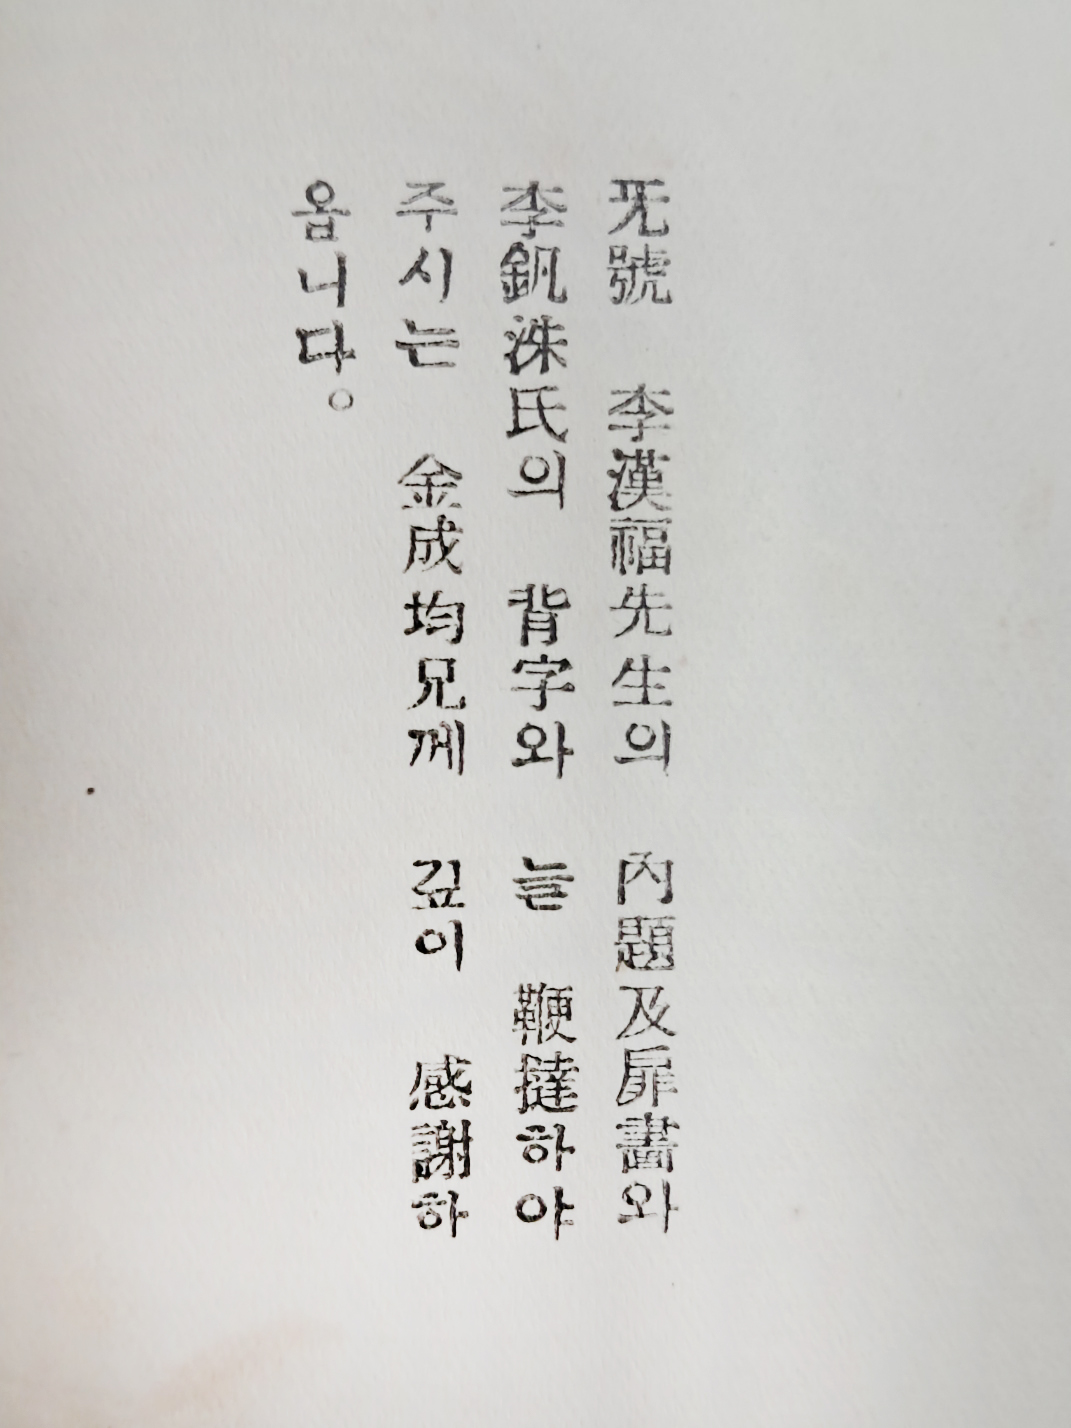 旡號 李漢福先生의 內題及扉畵와
李釩洙氏의 背字와 늘 鞭撻하야
주시는 金成均兄께 깊이 感謝하
옴니다。